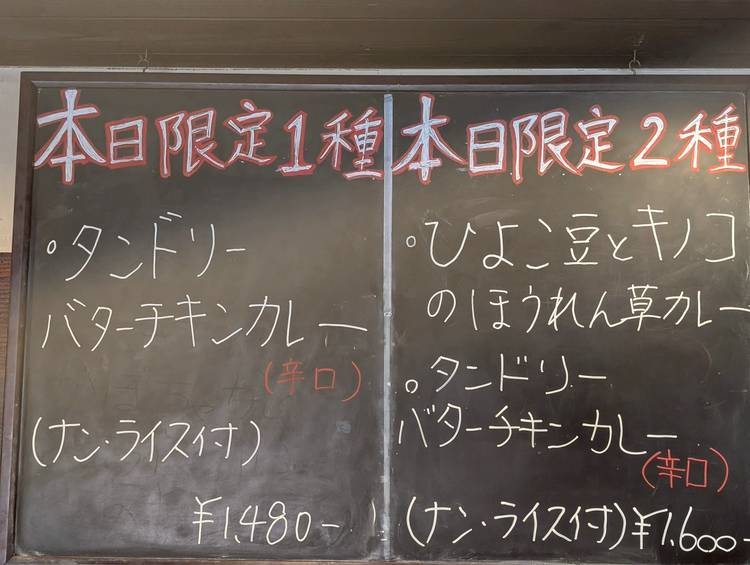 本日限定1種
○タンドリー
バターチキンカレー
(辛口)
(ナン・ライス付)
¥1,480-
本日限定2種
○ひよこ豆とキノコ
のほうれん草カレー
○タンドリー
バターチキンカレー
(辛口)
(ナン・ライス付)¥1,600-